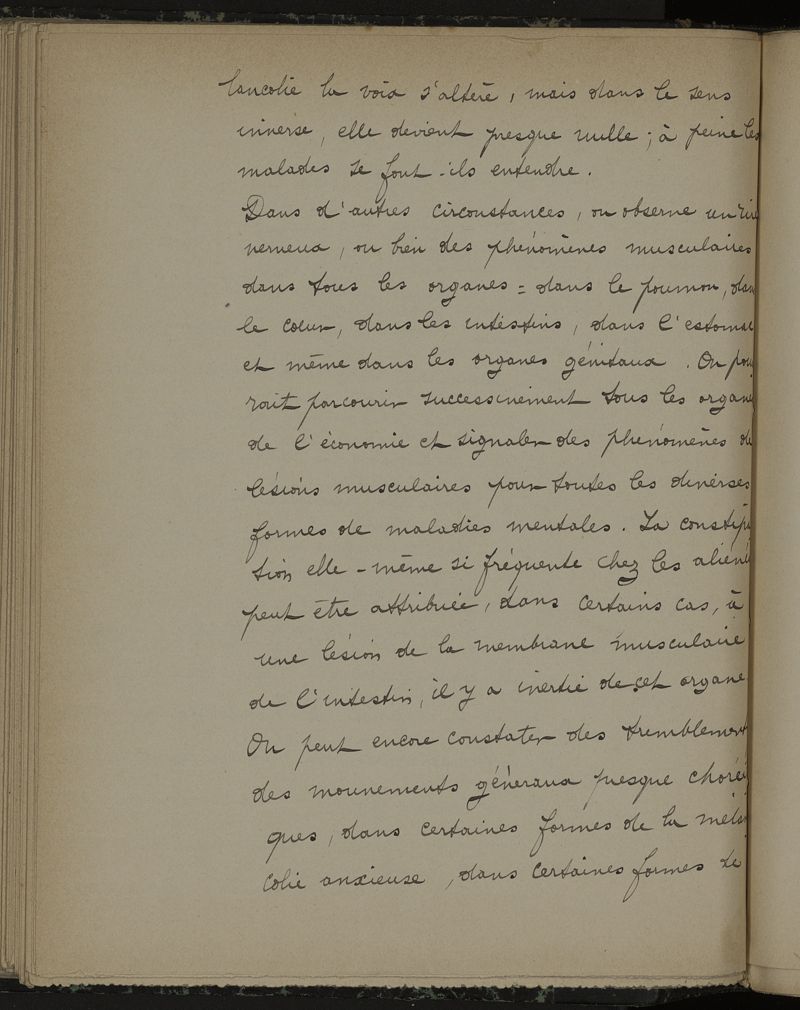 lancolie la voix s'altère, mais dans le sens
inverse, elle devient presque nulle ; à peine les
malades se font-ils entendre.
Dans d'autres circonstances, on observe un rire
nerveux, ou bien des phénomènes musculaires
dans tous les organes = dans le poumon, dans
le cœur, dans les intestins, dans l'estomac
et même dans les organes génitaux. On pour
rait parcourir successivement tous les organes
de l'économie et signaler des phénomènes de
lésions musculaires pour toutes les diverses
formes de maladies mentales. La constipa
tion elle-même si fréquente chez les aliénés
peut être attribuée, dans certains cas, à
une lésion de la membrane musculaire
de l'intestin, il y a inertie de cet organe
On peut encore constater des tremblements
des mouvements généraux presque choréi
ques, dans certaines formes de la mélan
colie anxieuse, dans certaines formes de